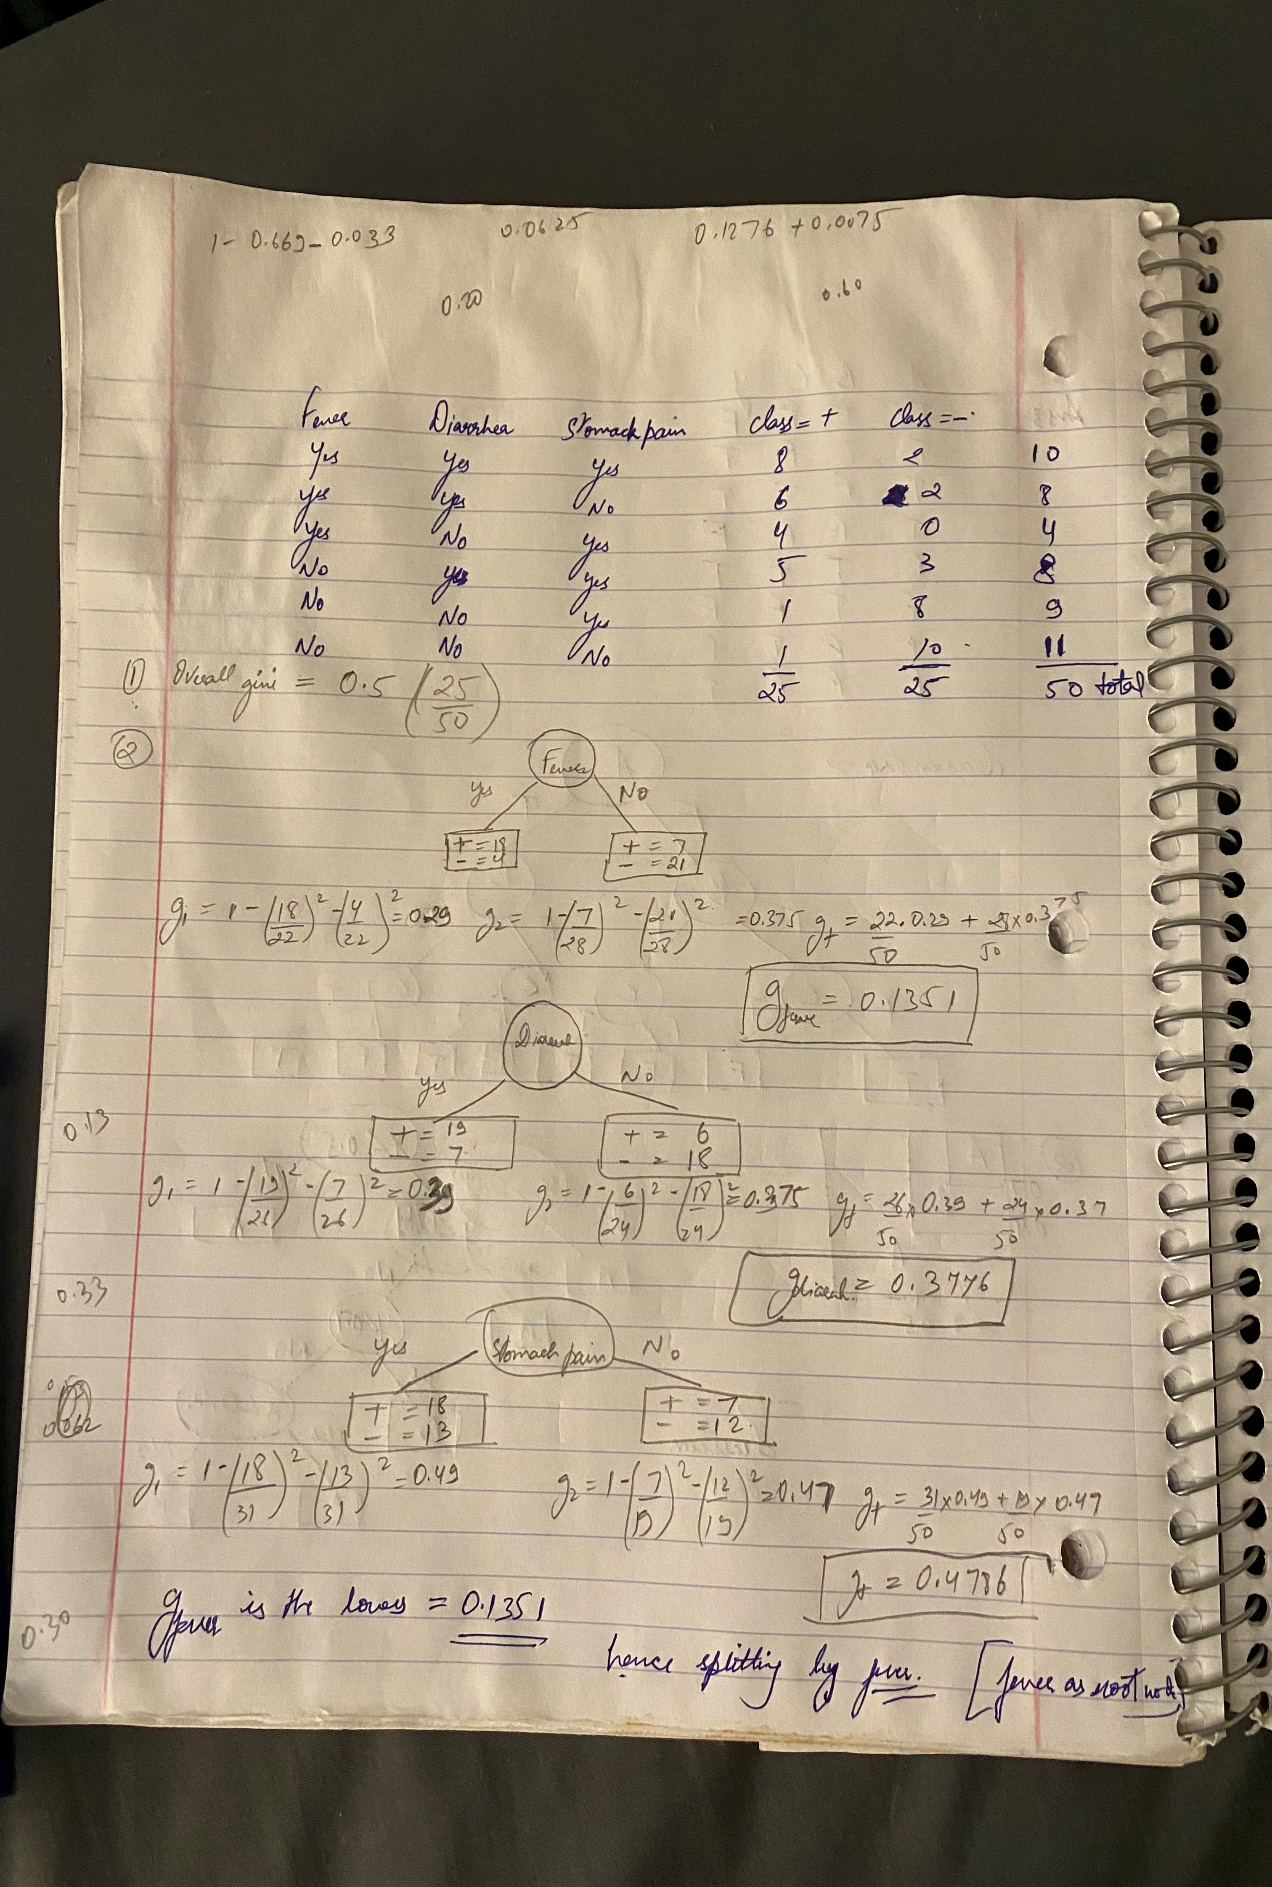 1 - 0.669 - 0.033 0.0625 0.1276 + 0.0075
0.20 0.60
Fever Diarrhea Stomach pain class = + class = -
Yes Yes Yes 8 2 10
Yes Yes No 6 2 8
Yes No Yes 4 0 4
No Yes Yes 5 3 8
No No Yes 1 8 9
No No No 1 10 11
① Overall gini = 0.5 (25/50) 25 25 50 total
② Fever
Yes No
+ = 18 + = 7
- = 4 - = 21
g1 = 1 - (18/22)² - (4/22)² = 0.29 g2 = 1 - (7/28)² - (21/28)² = 0.375 gt = 22/50 . 0.29 + 28/50 x 0.375
gfever = 0.1351
Yes No
0.13
+ = 19 + = 6
- = 7 - = 18
g1 = 1 - (19/26)² - (7/26)² = 0.39 g2 = 1 - (6/24)² - (18/24)² = 0.375 gt = 26/50 x 0.39 + 24/50 x 0.37
= 0.3776
0.33
Yes Stomach pain No
+ = 18 + = 7
- = 13 - = 12
g1 = 1 - (18/31)² - (13/31)² = 0.49 g2 = 1 - (7/19)² - (12/19)² = 0.47 gt = 31/50 x 0.49 + 19/50 x 0.47
gt = 0.4786
gfever is the = 0.1351
0.30
hence splitting by fever. [fever as root node]